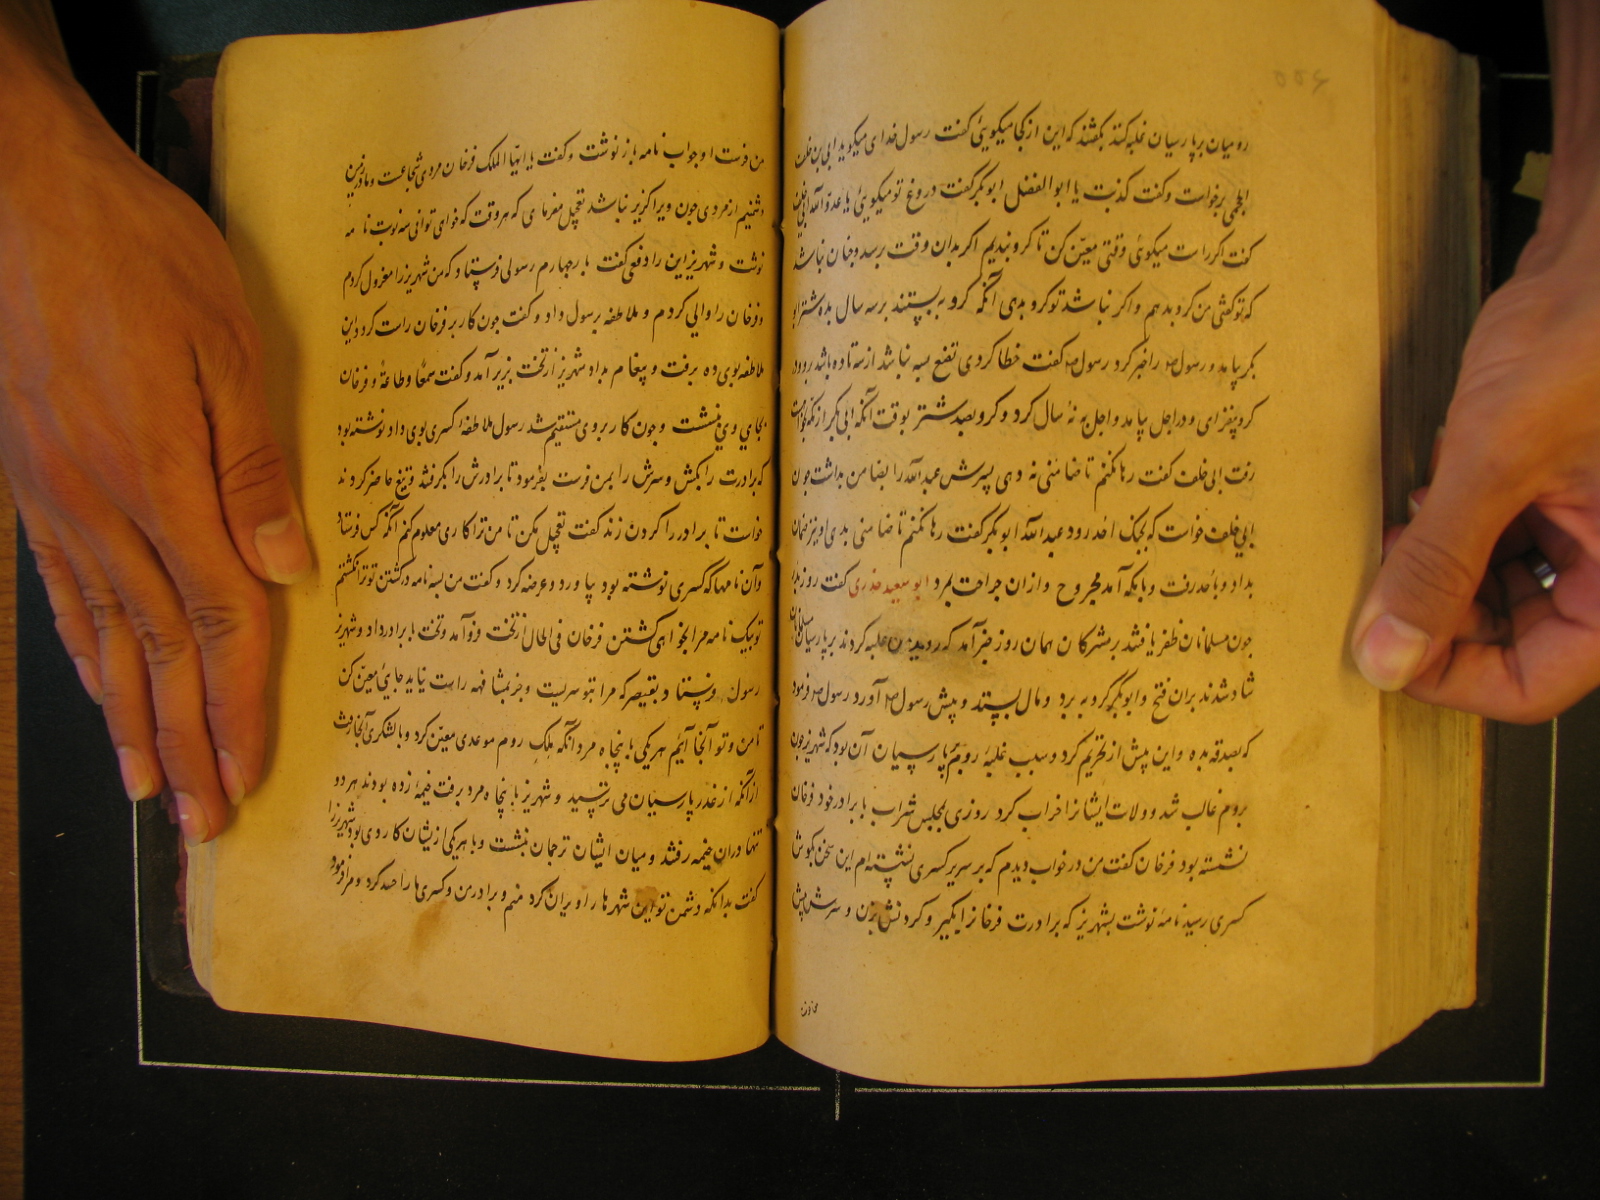 رومیان بر پارسیان غلبه کنند بکفتند که این از کجا میکویئی کفت رسول خدای میکوید ابی بن خلف
الجمحی برخواست وکفت کذبت یا ابوالفضل ابوبکر کفت دروغ تو میکویئ یا عدوّ الله ابی خلف
کفت اکر راست میکوئی وقتی معیّن کن تا کرو بندیم اکر بدان وقت رسد وچنان نباشد
که تو کفتی من کرو بدهم واکر نباشد تو کرو بدی آنکه کرو ببستند بر سه سال بده شتر ابو
بکر بیامد و رسول را خبر کرد رسول کفت خطا کردی بضع بسه نباشد از سه تا ده باشد برو ودر
کرو بیفزای ودر اجل بیامد واجل به نُه سال کرد و کرو بصد شتر بوقت آنکه ابی بکر از مکه بخواست
رفت ابی خلف کفت رها نکنم تا ضامنی نه دهی پسرش عبدالله را بضامن بداشت چون
ابی خلف خواست که بجنک احد رود عبدالله ابوبکر کفت رها نکنم تا ضامنی بدی او نیز ضمان
بداد و باُحد رفت و بامکه آمد مجروح وازان جراحت بمرد ابو سعید خدری کفت روز بدر
چون مسلمانان ظفر یافتند بر مشرکان همان روز خبر آمد که رومیان غلبه کردند بر پارسیان مسلمانان
شاد شدند بران فتح و ابوبکر کرو به برد و مال بستد و پیش رسول آورد رسول فرمود
که بصدقه بده واین پیش از تحریم کرد وسبب غلبهٔ روم بر پارسیان آن بود که شهریز چون
بروم غالب شد وولات ایشانرا خراب کرد روزی بمجلس شراب با برادر خود فرخان
نشسته بود فرخان کفت من در خواب دیدم که بر سریر کسری نشسته ام این سخن بکوش
کسری رسید نامهٔ نوشت بشهریز که برادرت فرخانرا بکیر و کردنش بزن و سرش پیش
من فرست او جواب نامه باز نوشت وکفت یا ایّها الملک فرخان مردی شجاعت وما در زمین
دشمنیم از مردی چون ویرا کزیر نباشد تعجیل مفرمای که هر وقت که خواهی توانی سه نوبت نامه
نوشت وشهریز این را دفعی کفت بار چهارم رسولی فرستاد که من شهریز را معزول کردم
وفرخان را والی کردم و ملاطفه برسول داد و کفت چون کار بر فرخان راست کردد این
ملاطفه بوی ده برفت و پیغام بداد شهریز از تخت بزیر آمد وکفت سمعًا وطاعةً و فرخان
بجای وی بنشست وچون کار بر وی مستقیم شد رسول ملاطفهٔ کسری بوی داد نوشته بود
که برادرت را بکش و سرش را بمن فرست بفرمود تا برادرش را بکرفتند و تیغ حاضر کردند
خواست تا برادر را کردن زند کفت تعجیل مکن تا من ترا کاری معلوم کنم آنکه کس فرستاد
وآن نامها که کسری نوشته بود بیاورد و عرضه کرد و کفت من بسه نامه در کشتن تو ترا نکشتم
تو بیک نامه مرا بخواهی کشتن فرخان فی الحال از تخت فرو آمد وتخت با برادر داد وشهریز
رسول فرستاد بقیصر که مرا بتو سریست وجز بمشافهه راست نیاید جایئ معیّن کن
تا من وتو آنجا آئیم هر یکی با پنجاه مرد آنکه ملک روم موعدی معیّن کرد و با لشکری آنجا رفت
از آنکه از غدر پارسیان می ترسید و شهریز با پنجاه مرد برفت خیمهٔ زده بودند هر دو
تنها دران خیمه رفتند ومیان ایشان ترجمان بنشست وبا هر یکی از یشان کاردی بود شهریز را
کفت بدانکه دشمن تو این شهرها را ویران کرد منم و برادر من وکسری ما را حسد کرد و مرا فرمود